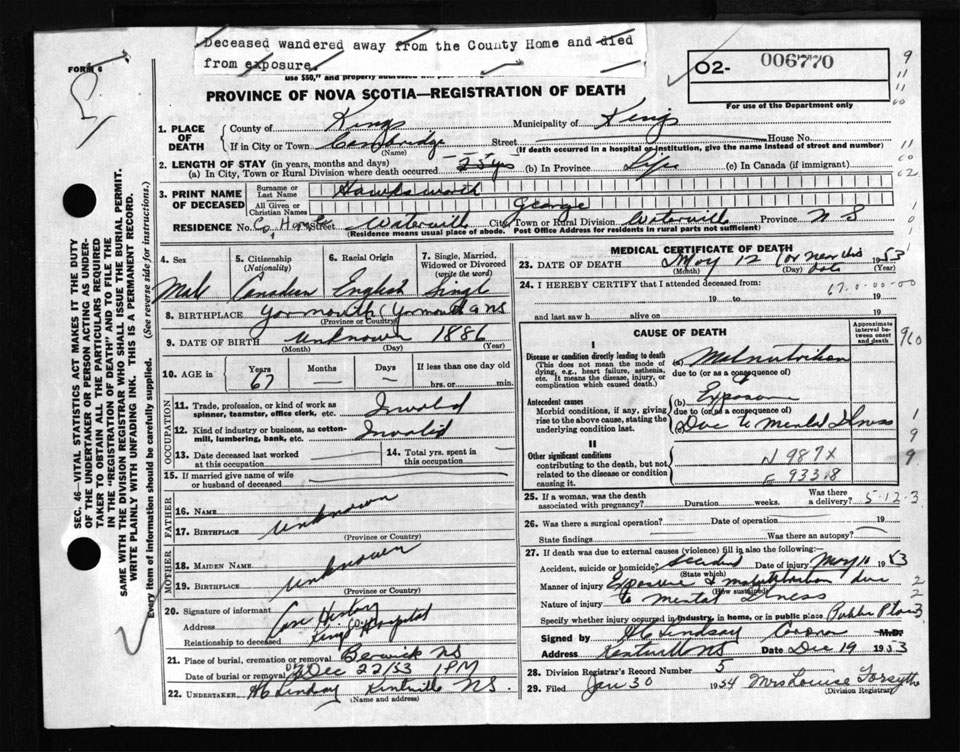 Deceased wandered away from the County Home and died
from exposure.
FORM 6
use $50," and properly addressed
O2- 006770
For use of the Department only
PROVINCE OF NOVA SCOTIA—REGISTRATION OF DEATH
1. PLACE OF DEATH
County of Kings Municipality of Kings
If in City or Town Cambridge Street House No.
(Name) (If death occurred in a hospital or institution, give the name instead of street and number)
2. LENGTH OF STAY (in years, months and days)
(a) In City, Town or Rural Division where death occurred 25 yrs (b) In Province Life (c) In Canada (if immigrant)
3. PRINT NAME OF DECEASED
Surname or Last Name Hawksworth
All Given or Christian Names George
RESIDENCE No. Co. Home Street Waterville City, Town or Rural Division Waterville Province N S
(Residence means usual place of abode. Post Office Address for residents in rural parts not sufficient)
4. Sex 5. Citizenship (Nationality) 6. Racial Origin 7. Single, Married, Widowed or Divorced (write the word)
Male Canadian English Single
8. BIRTHPLACE Yarmouth (Yarmouth Co NS
(Province or Country)
9. DATE OF BIRTH Unknown 1886
(Month) (Day) (Year)
10. AGE in Years Months Days If less than one day
67 — — hrs. or min.
OCCUPATION
11. Trade, profession or kind of work as spinner, teamster, office clerk, etc. Invalid
12. Kind of industry or business, as cotton-mill, lumbering, bank, etc. Invalid
13. Date deceased last worked at this occupation — 14. Total yrs. spent in this occupation —
15. If married give name of wife or husband of deceased
FATHER
16. NAME
17. BIRTHPLACE Unknown
(Province or Country)
MOTHER
18. MAIDEN NAME
19. BIRTHPLACE Unknown
(Province or Country)
20. Signature of informant Case History
Address Kings Co. Hospital
Relationship to deceased
21. Place of burial, cremation or removal Berwick NS
Date of burial or removal Dec 22/53 1 PM
22. UNDERTAKER H C Lindsay Kentville N.S.
(Name and address)
MEDICAL CERTIFICATE OF DEATH
23. DATE OF DEATH May 12 (or near this date 1953
(Month) (Day) (Year)
24. I HEREBY CERTIFY that I attended deceased from:
19 to 19
and last saw h alive on 19
67.0-00-00
CAUSE OF DEATH
Approximate interval between onset and death
I
Disease or condition directly leading to death
(This does not mean the mode of dying, e.g., heart failure, asthenia, etc. It means the disease, injury, or complication which caused death.)
(a) Malnutrition
due to (or as a consequence of)
Antecedent causes
Morbid conditions, if any, giving rise to the above cause, stating the underlying condition last.
(b) Exposure
due to (or as a consequence of)
(c) Due to Mental Illness
II
Other significant conditions
contributing to the death, but not related to the disease or condition causing it.
N 987X
E 933.8
25. If a woman, was the death associated with pregnancy? Duration weeks. Was there a delivery? 5-12-3
26. Was there a surgical operation? Date of operation 19
State findings Was there an autopsy?
27. If death was due to external causes (violence) fill in also the following:—
Accident, suicide or homicide? Accident Date of injury May 10 1953
(State which)
Manner of injury Exposure & malnutrition due
(How sustained)
Nature of injury to mental Illness
Specify whether injury occurred in industry, in home, or in public place Public Place
Signed by H C Lindsay Coroner M.D.
Address Kentville NS Date Dec 19 1953
28. Division Registrar's Record Number 5
29. Filed Jan 30 1954 Mrs Louise Forsythe
(Division Registrar)
SEC. 46—VITAL STATISTICS ACT MAKES IT THE DUTY
OF THE UNDERTAKER OR PERSON ACTING AS UNDER-
TAKER TO OBTAIN ALL THE PARTICULARS REQUIRED
IN THE "REGISTRATION OF DEATH" AND TO FILE THE
SAME WITH THE DIVISION REGISTRAR WHO SHALL ISSUE THE BURIAL PERMIT.
WRITE PLAINLY WITH UNFADING INK. THIS IS A PERMANENT RECORD.
Every item of information should be carefully supplied. (See reverse side for instructions.)